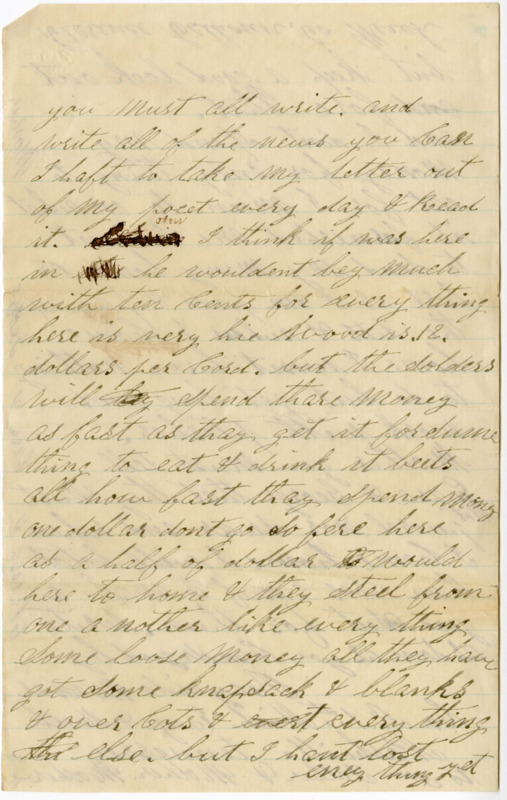 you must all write. and
write all of the news you Can
I haft to take my letter out
of my pocet every day & Reead
it. I think if was here
in he wouldent bey much
with ten Cents for every thing
here is very hie Wood is .12.
dollars per Cord. but the solders
will spend thare money
as fast as thay get it for sume
thing to eat & drink it beets
all how fast thay spend mony
one dollar dont go so fere here
as a half of dollar would
here to home & they steel from
one a nother like every thing
Some loose money all they have
got some knapsack & blanks
& over Cots & every thing
else. but I hant lost
eney thing yet